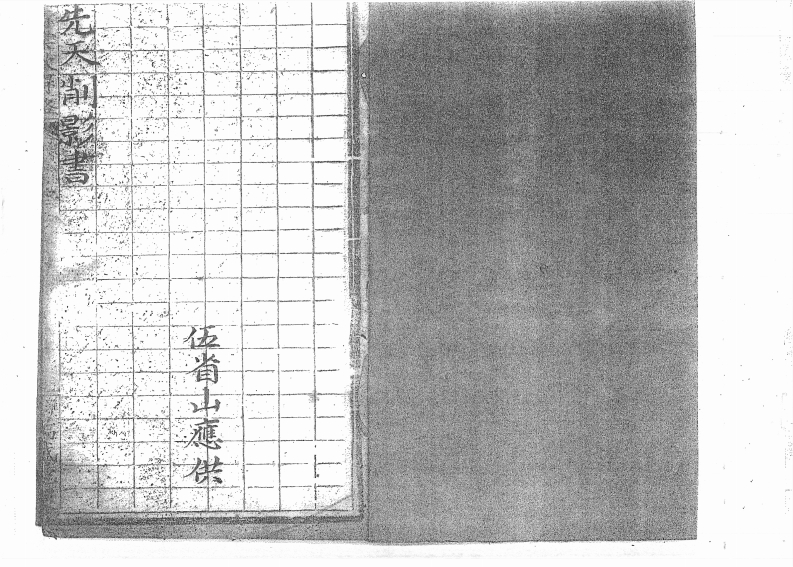 先天削影書
伍省山應供